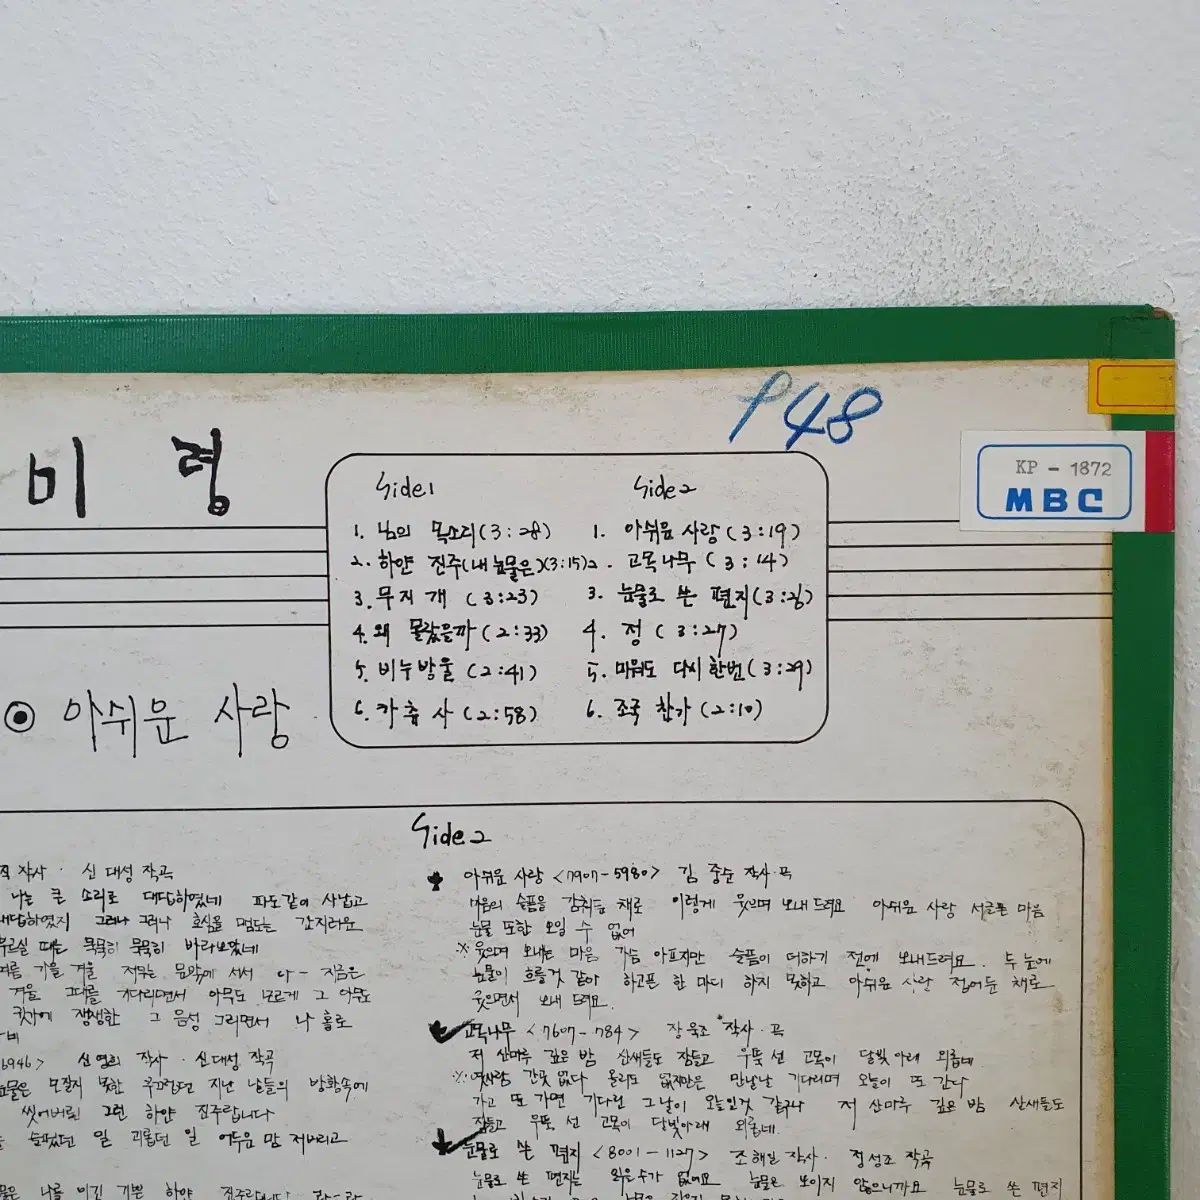 P48
KP - 1872
MBC
미 령
Side 1
1. 님의 목소리 (3:28)
2. 하얀 진주(내 눈물은)(3:15)
3. 무지개 (3:23)
4. 왜 몰랐을까 (2:33)
5. 비누방울 (2:41)
6. 가츄사 (2:58)
Side 2
1. 아쉬운 사랑 (3:19)
2. 고목나무 (3:14)
3. 눈물로 쓴 편지 (3:26)
4. 정 (3:27)
5. 미워도 다시한번 (3:29)
6. 조국 찬가 (2:10)
◉ 아쉬운 사랑
작사 · 신 대성 작곡
나는 큰 소리로 대답하였네 파도같이 사납고
대답하였지 그러나 그러나 호심을 맴도는 간지러운
부르실 때는 묵묵히 묵묵히 바라보았네
여름 가을 겨울 저무는 문밖에 서서 나 - 지금은
겨울 그대를 기다리면서 아무도 모르게 그 아무도
창가에 쟁쟁한 그 음성 그리면서 나 홀로
6946> 신영희 작사 · 신대성 작곡
눈물은 모질지 못한 지난 날들의 방황속에
씻어버린 그런 하얀 진주랍니다
슬펐던 일 괴롭던 일 어두운 맘 저버리고
나를 이긴 기쁜 하얀 진주랍니다
Side 2
아쉬운 사랑 <7907-5980> 김 중순 작사·곡
마음의 슬픔을 감춰둔 채로 이렇게 웃으며 보내드려요 아쉬운 사랑 서글픈 마음
눈물 또한 보일 수 없어
※ 웃으며 보내는 마음 가슴 아프지만 슬픔이 더하기 전에 보내드려요. 두 눈에
눈물이 흐를것 같아 하고픈 한 마디 하지 못하고 아쉬운 사랑 접어둔 채로
웃으면서 보내 드려요.
고목나무 <7607-784> 장 욱조 작사·곡
저 산마루 깊은 밤 산새들도 잠들고 우뚝 선 고목이 달빛아래 외롭네
※ 옛사람 간곳 없다 올리도 없지만은 만날날 기다리며 오늘이 또 간다
가고 또 가면 기다린 그날이 오늘일것 같구나 저 산마루 깊은 밤 산새들도
잠들고 우뚝 선 고목이 달빛아래 외롭네.
눈물로 쓴 편지 <8001-1127> 조해일 작사· 정성조 작곡
눈물로 쓴 편지는 읽을수가 없어요 눈물은 보이지 않으니까요 눈물로 쓴 편지